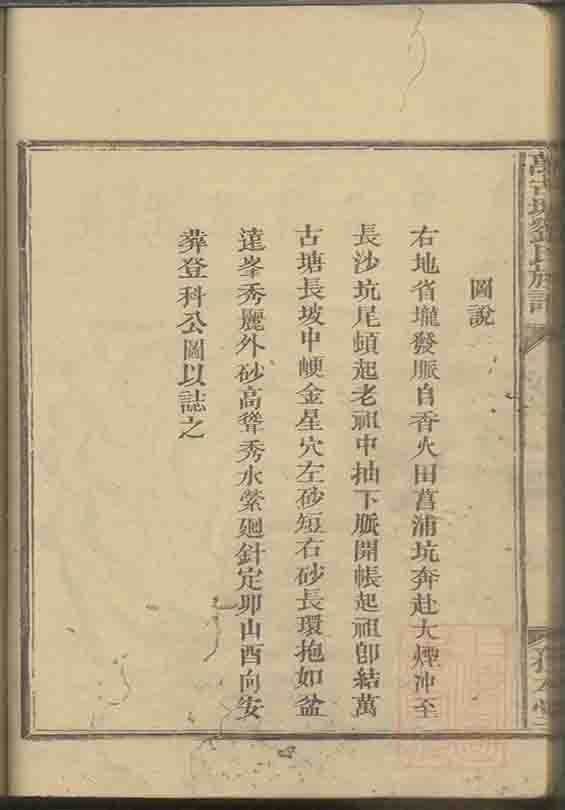 圖說
右地省壠發脈自香火田菖蒲坑奔赴大煙沖至
長沙坑尾頓起老祖中抽下脈開帳起祖卽結萬
古塘長坡中崾金星穴左砂短右砂長環抱如盆
遠峯秀麗外砂高聳秀水縈廻針定卯山酉向安
葬登科公圖以誌之